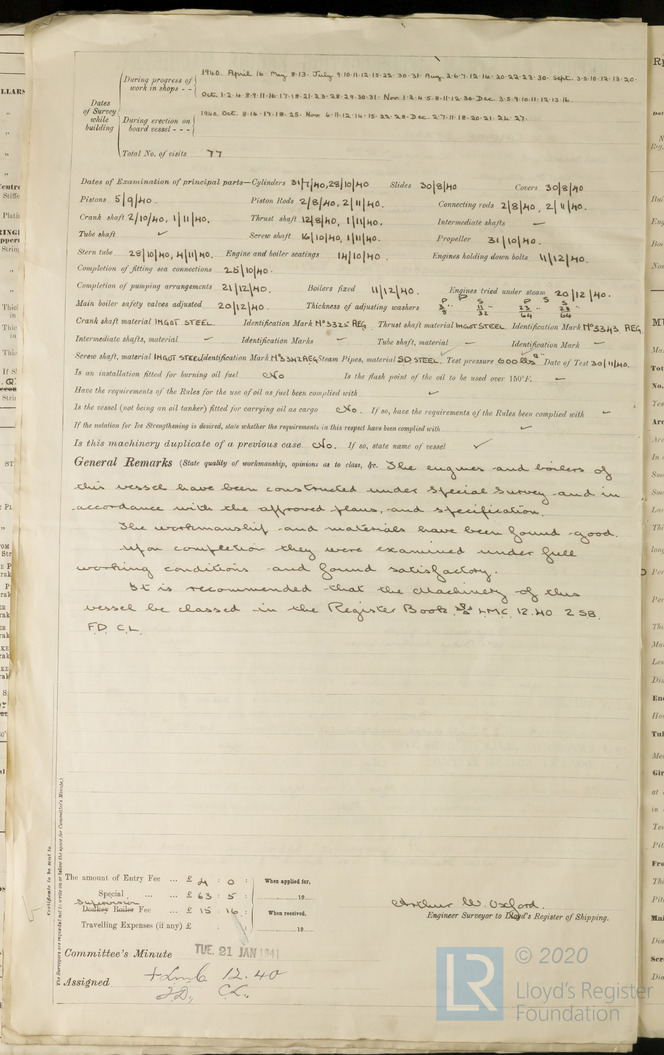 Dates of Survey while building
During progress of work in shops - - 1940. April 16. May 8.13. July 9.10.11.12.15.22.30.31. Aug. 2.6.7.12.16.20.22.23.30. Sept. 3.5.10.12.13.20.
Oct. 1.2.4.8.9.11.16.17.18.21.23.28.29.30.31. Nov. 1.2.4.5.8.11.12.30. Dec. 3.5.9.10.11.12.13.16.
During erection on board vessel - - - 1940. Oct. 8.16.17.18.25. Nov. 6.11.12.14.15.22.28. Dec. 2.7.11.18.20.21.24.27.
Total No. of visits 77
Dates of Examination of principal parts—Cylinders 31/7/40, 28/10/40 Slides 30/8/40 Covers 30/8/40
Pistons 5/9/40. Piston Rods 2/8/40, 2/11/40. Connecting rods 2/8/40, 2/11/40.
Crank shaft 2/10/40, 1/11/40. Thrust shaft 12/8/40, 1/11/40. Intermediate shafts —
Tube shaft ✓ Screw shaft 16/10/40, 1/11/40. Propeller 31/10/40.
Stern tube 28/10/40, 4/11/40. Engine and boiler seatings 14/10/40. Engines holding down bolts 11/12/40.
Completion of fitting sea connections 25/10/40.
Completion of pumping arrangements 21/12/40. Boilers fixed 11/12/40. Engines tried under steam 20/12/40.
Main boiler safety valves adjusted 20/12/40. Thickness of adjusting washers P 3/8" P S 11/32 P 23/64 S 23/64
Crank shaft material INGOT STEEL. Identification Mark Nº3325 REG. Thrust shaft material INGOT STEEL Identification Mark Nº3343 REG.
Intermediate shafts, material — Identification Marks — Tube shaft, material — Identification Mark —
Screw shaft, material INGOT STEEL Identification Mark Nº3342 REG. Steam Pipes, material SD STEEL. Test pressure 600 lbs □" Date of Test 30/11/40.
Is an installation fitted for burning oil fuel No Is the flash point of the oil to be used over 150°F. —
Have the requirements of the Rules for the use of oil as fuel been complied with ✓
Is the vessel (not being an oil tanker) fitted for carrying oil as cargo No. If so, have the requirements of the Rules been complied with —
If the notation for Ice Strengthening is desired, state whether the requirements in this respect have been complied with —
Is this machinery duplicate of a previous case No. If so, state name of vessel ✓
General Remarks (State quality of workmanship, opinions as to class, &c. The engines and boilers of
this vessel have been constructed under Special Survey and in
accordance with the approved plans, and specification.
The workmanship and materials have been found good.
Upon completion they were examined under full
working conditions and found satisfactory.
It is recommended that the Machinery of this
vessel be classed in the Register Book LMC. 12.40 2 SB.
F.D. C.L.
The amount of Entry Fee ... £ 4 : 0 : When applied for,
Special ... ... £ 63 : 5 : 19
Supervision
Donkey Boiler Fee ... £ 15 : 16 : When received,
Travelling Expenses (if any) £ : : 19
Arthur W. Oxford.
Engineer Surveyor to Lloyd's Register of Shipping.
Committee's Minute TUE. 21 JAN 1941
Assigned + Lmc 12.40
F.D., C.L.
Certificate to be sent to
The Surveyors are requested not to write on or below the space for Committee's Minute.
© 2020
LR
Lloyd's Register
Foundation